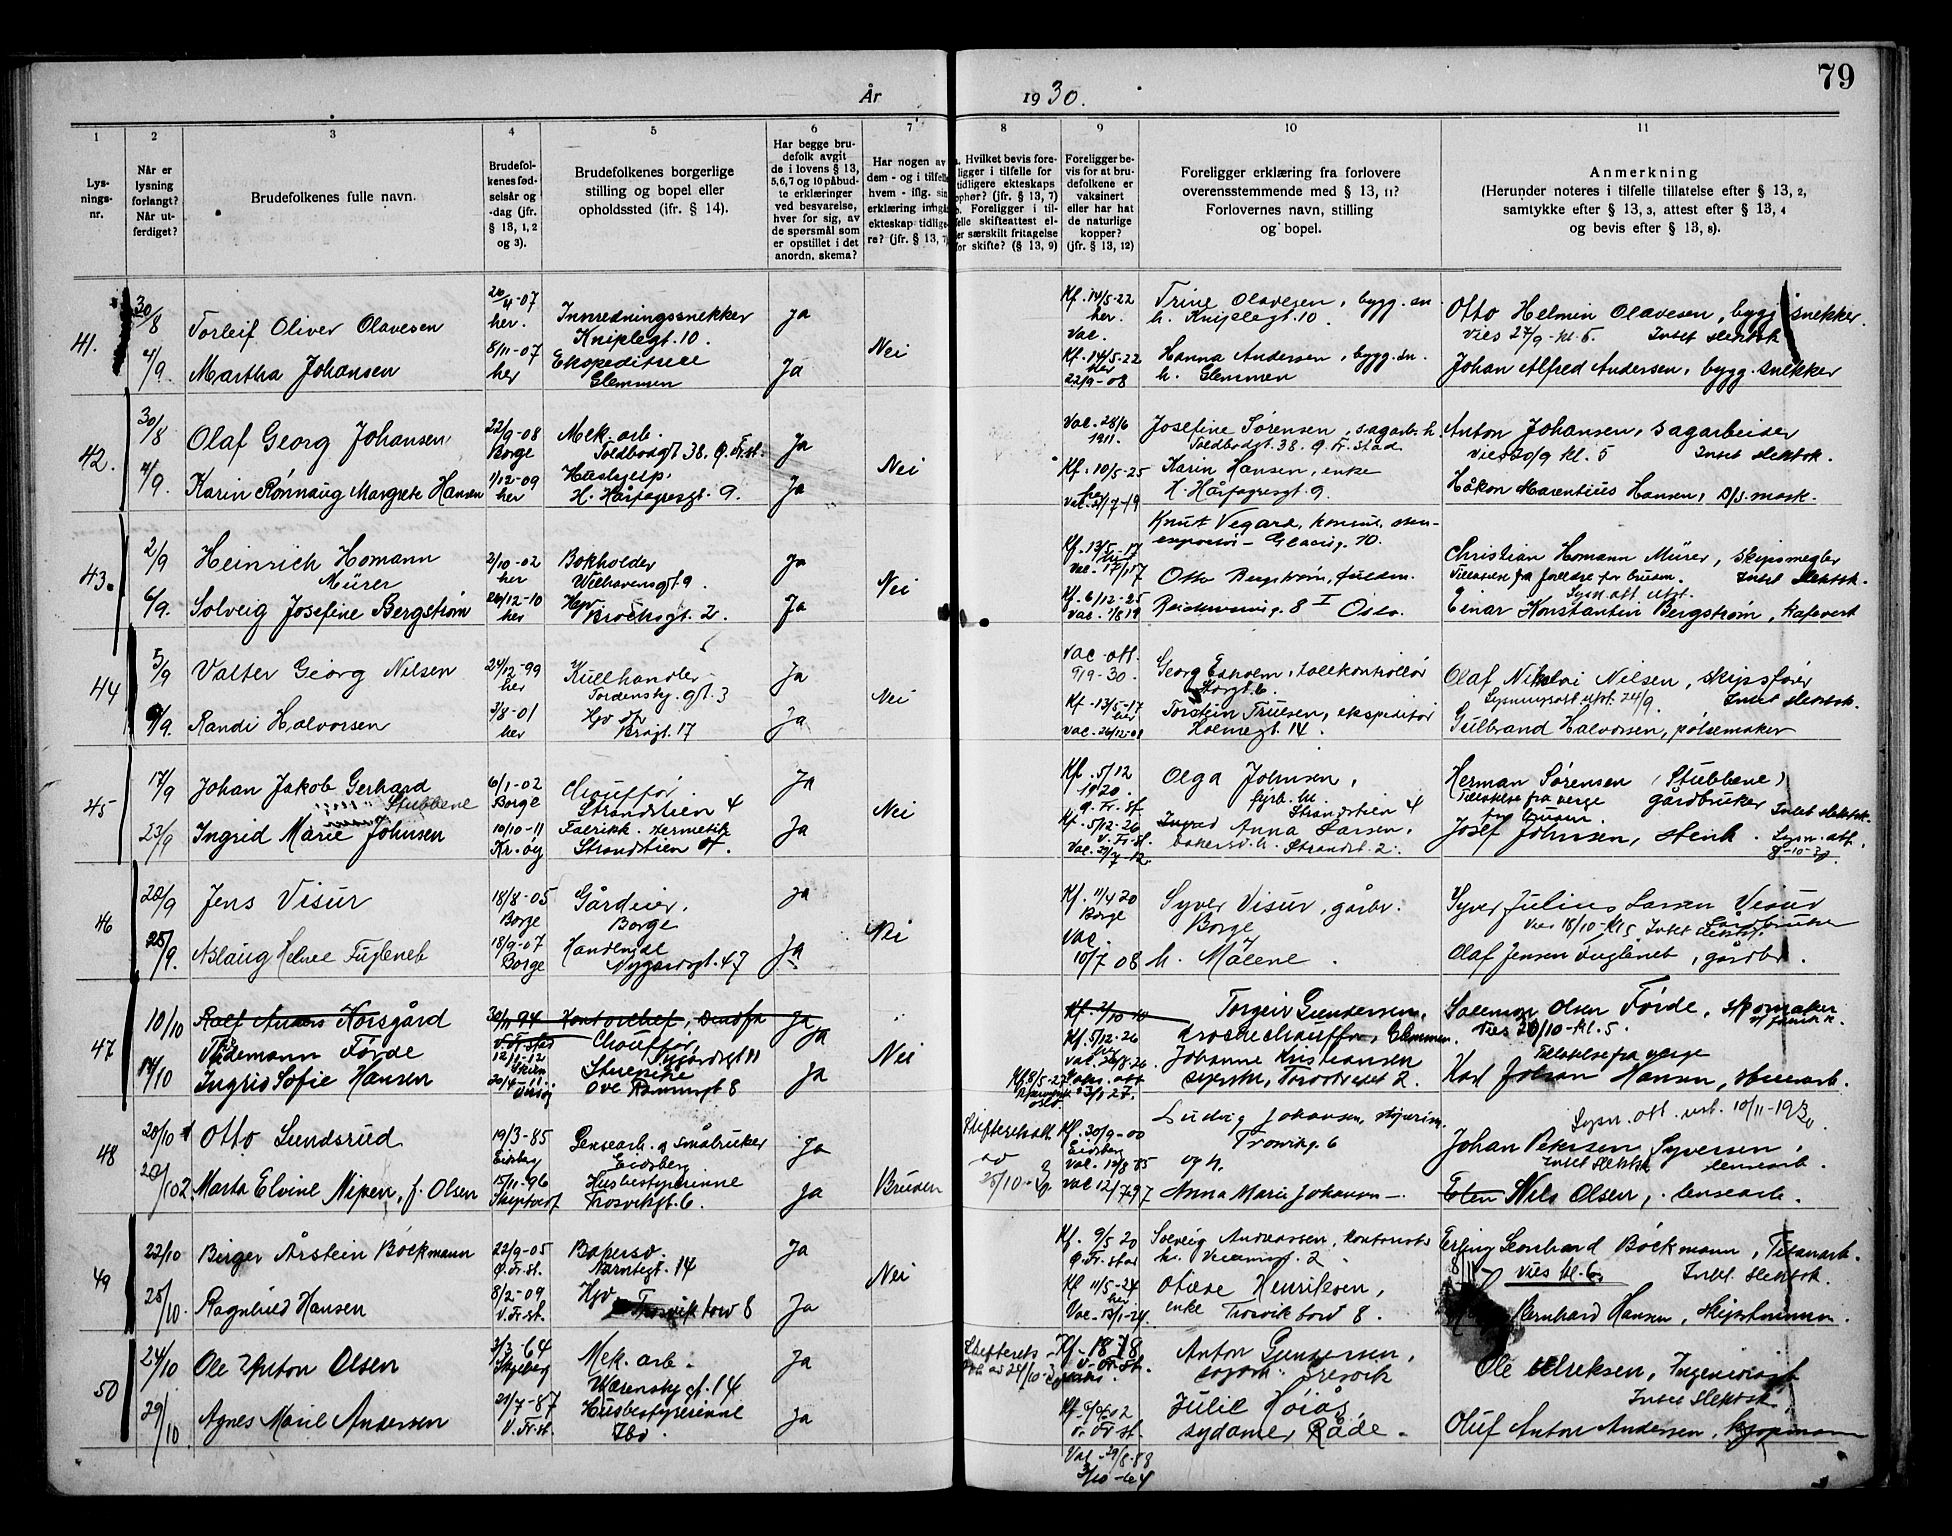 79
År 1930.
1 2 3 4 5 6 7 8 9 10 11
Lys-
nings-
nr.
Når er
lysning
forlangt?
Når ut-
ferdiget?
Brudefolkenes fulle navn.
Brudefol-
kenes fød-
selsår og
-dag (jfr.
§ 13, 1, 2
og 3).
Brudefolkenes borgerlige
stilling og bopel eller
opholdssted (ifr. § 14).
Har begge bru-
defolk avgit
de i lovens § 13,
5, 6, 7 og 10 påbud-
te erklæringer
ved besvarelse,
hver for sig, av
de spørsmål som
er opstillet i det
anordn. skema?
Har nogen av
dem - og i tilfelle
hvem - iflg. sin
erklæring inngåt
ekteskap tidlige-
re? (jfr. § 13, 7
a. Hvilket bevis fore-
ligger i tilfelle for
tidligere ekteskaps
ophør? (jfr. § 13, 7)
b. Foreligger i til-
felle skifteattest el-
ler særskilt fritagelse
for skifte? (§ 13, 9)
Foreligger be-
vis for at bru-
defolkene er
vaksinert
eller har hat
de naturlige
kopper?
(jfr. § 13, 12)
Foreligger erklæring fra forlovere
overensstemmende med § 13, 11?
Forlovernes navn, stilling
og bopel.
Anmerkning
(Herunder noteres i tilfelle tillatelse efter § 13, 2,
samtykke efter § 13, 3, attest efter § 13, 4
og bevis efter § 13, 8).
41. 30/8 Torleif Oliver Olavesen 26/4-07 her. Innredningssnekker Kniplegt. 10. Ja Kf. 14/5-22 her. Vac. Trine Olavesen, bygg.sn. h. Kniplegt. 10. Otto Helmin Olavesen, bygg snekker.
Vies 27/9-kl. 5. Intet slektsk.
4/9. Martha Johansen 8/11-07 her Ekspeditrice Glemmen Ja Nei Kf. 14/5-22 her 22/9-08 Hanna Andersen, bygg.sn. h. Glemmen Johan Alfred Andersen, bygg. snekker
42. 30/8 Olaf Georg Johansen 22/9-08 Borge Mek. arb. Toldbodgt 38. Ø. Fr.st. Ja Vac. 28/6 1911. Josefine Sørensen, sagarb. h. Toldbodgt. 38. Ø. Fr.stad Anton Johansen, sagarbeider
Vies 20/9 kl. 5 Intet slektsk.
4/9. Karin Rønnaug Margrete Hansen 1/12-09 her Hushjelp, H. Hårfagresgt. 9. Ja Nei Kf. 10/5-25 her Vac. 21/7-19 Karin Hansen, enke H. Hårfagresgt. 9. Håkon Marentius Hansen, D/S. mask.
43. 2/9 Heinrich Homann Mürer 2/10-02 her Bokholder Wilhavensgt 9 Ja Kf. 13/5-17 Knut Vegard, konsul, Glacisg. 10. Christian Homann Mürer, skipsmegler
Tillatelse fra foreldre for bruden. Intet slektsk.
Lysn. att utst.
6/9. Solveig Josefine Bergstrøm 26/12-10 her Hjv Brochsgt. 2. Ja Nei Kf. 6/12-25 Vac. 1/8 19 Otto Bergstrøm, 8 I Oslo. Einar Konstantin Bergstrøm, kafevert
44 5/9 Valter Georg Nilsen 24/12-99 her Kullhandler Tordenskj. gt. 3 Ja Vac att. 9/9-30. Georg Eskolm, tollkontrollør Storgt. 6. Olaf Nikolai Nielsen, skipsfører
Lysningsatt. utst. 24/9. Intet slektsk.
9/9. Randi Halvorsen 3/8-01 her Hjv Brogt. 17 Ja Nei Kf. 13/5-17 her Vac. 26/12-01 Torstein Truelsen, ekspeditør Holmegt. 14. Gulbrand Halvorsen, pølsemaker
45 17/9 Johan Jakob Gerhard Stubbene 6/1-02 Borge Chauffør Strandstien 4 Ja Kf. 5/12 1920. Ø. Fr. st. Olga Johnsen, fyrb. h. Strandstien 4 Herman Sørensen (Stubbene) gårdbruker
Tillatelse fra verge for bruden. Intet slektsk.
23/9 Ingrid Marie Johnsen 10/10-11 Kr. øy Fabrikk. Hermetik Strandstien 4. Ja Nei Kf. 5/12-26 V. Fr. st. Anna Larsen, bakersv. h. Strandst. 2. Josef Johnsen, Lysn. att. 8-10-30.
46 20/9 Jens Visur 18/8-05 Borge Gårdeier, Borge Ja Kf. 11/4 20 Borge Syver Visur, gårbr. Borge Syver Julius Larsen Visur gårdbruker
Vies 18/10-kl 5 Intet slektsk.
25/9. Aslaug Helene Fuglenet 18/9-07 Borge Handende Nygårdsgt. 47 Ja Nei Vac. 10/7 08 h. Målene. Olaf Jensen Fuglenet, gårdbr.
47 10/10 Rolf Anders Korsgård 30/11 94 V. Fr. stad Kontorchef, Ja
Thidemann Førde 12/11-12 Skien Chauffør, Nygårdsgt 11 Ja Kf. 5/12-26 Torgeir Gundersen, drosjechauffør, Glemmen. Salemon Olsen Førde, skomaker
Vies 20/10-kl. 5.
Tillatelse fra verge
14/10 Ingrid Sofie Hansen 20/4-11 Stuepike Ove Rammsgt 8 Ja Nei Kf 18/5-27 Oslo. Johanne Kristiansen syerske, Trosvikstr. 2. Karl Johan Hansen, stenarb.
Lysn. att. utst. 10/11-1930
48 20/10 Otto Lundsrud 19/3-85 Eidsberg Lensearb. og småbruker Eidsberg Ja Skifterettsatt. av 25/10-30 Kf. 30/9-00 Eidsberg Vac. 12/8 85 Ludvig Johansen, Trosvikg. 6 og h. Johan Petersen Syversen, lensearb.
Intet slektsk.
20/10 Marta Elvine Nipen, f. Olsen 15/11-96 Skiptvedt Husbestyrerinne Trosvikgt. 6. Ja Bruden Vac 12/7 97 Anna Marie Johansen. Nils Olsen, lensearb.
49 22/10 Birger Årstein Bøckmann 22/9-05 Ø. Fr. st. Bakersv. Narntegt. 14 Ja Kf. 9/5 20 Ø. Fr. stad Solveig Andreassen, kontorist h. 2. Erling Leonhard Bøckmann, Titanarb.
8/11 Vies kl. 6. Intet slektsk.
25/10. Ragnhild Hansen 8/2-09 V. Fr. st. Hjv. Trosvik bord 8 Ja Nei Kf 11/5-24 her Vac. 13/1-24. Otilde Henriksen, enke Trosvik bord 8. Bernhard Hansen, skipstømmerm.
50 24/10 Ole Anton Olsen 3/3-64 Skjeberg Mek. arb. Wærenskj gt. 14 Ja Skifterets att. av 24/10-30 Kf. 1878 V. Fr. st. Anton Gundersen, Gresvik Ole Ulriksen,
Intet slektsk.
29/10 Agnes Marie Andersen 21/7-87 V. Fr. st. Husbestyrerinne Ibd. Ja V. Fr st. Julie Høiås, sydamer Råde. Oluf Anton Andersen, kjøpmann
Vac 29/8-88
3/10-64